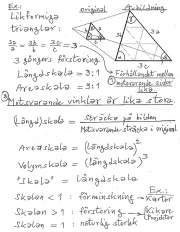 Ex:
original
Avbildning
Likformiga
trianglar:
3a/a = 3b/b = 3c/c = 3
3 gångers förstoring
Längdskala = 3:1
Areaskala = 3²:1
Förhållandet mellan
motsvarande sidor
lika.
Motsvarande vinklar är lika stora.
(Längd)skala = Sträcka på bilden / Motsvarande sträcka i original
Areaskala = (Längdskala)²
Volymskala = (Längdskala)³
"skala" = Längdskala
Ex:
Skalan < 1 : förminskning → Kartor
Skalan > 1 : förstoring → Kikare
Projektor
Skalan = 1 : naturlig storlek